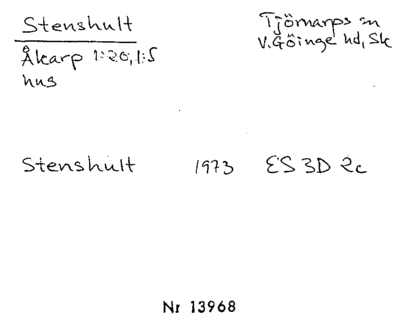 Stenshult
Tjörnarps sn
V. Göinge hd, Sk
Åkarp 1:20, 1:5
hus
Stenshult 1973 ES 3D 2c
Nr 13968